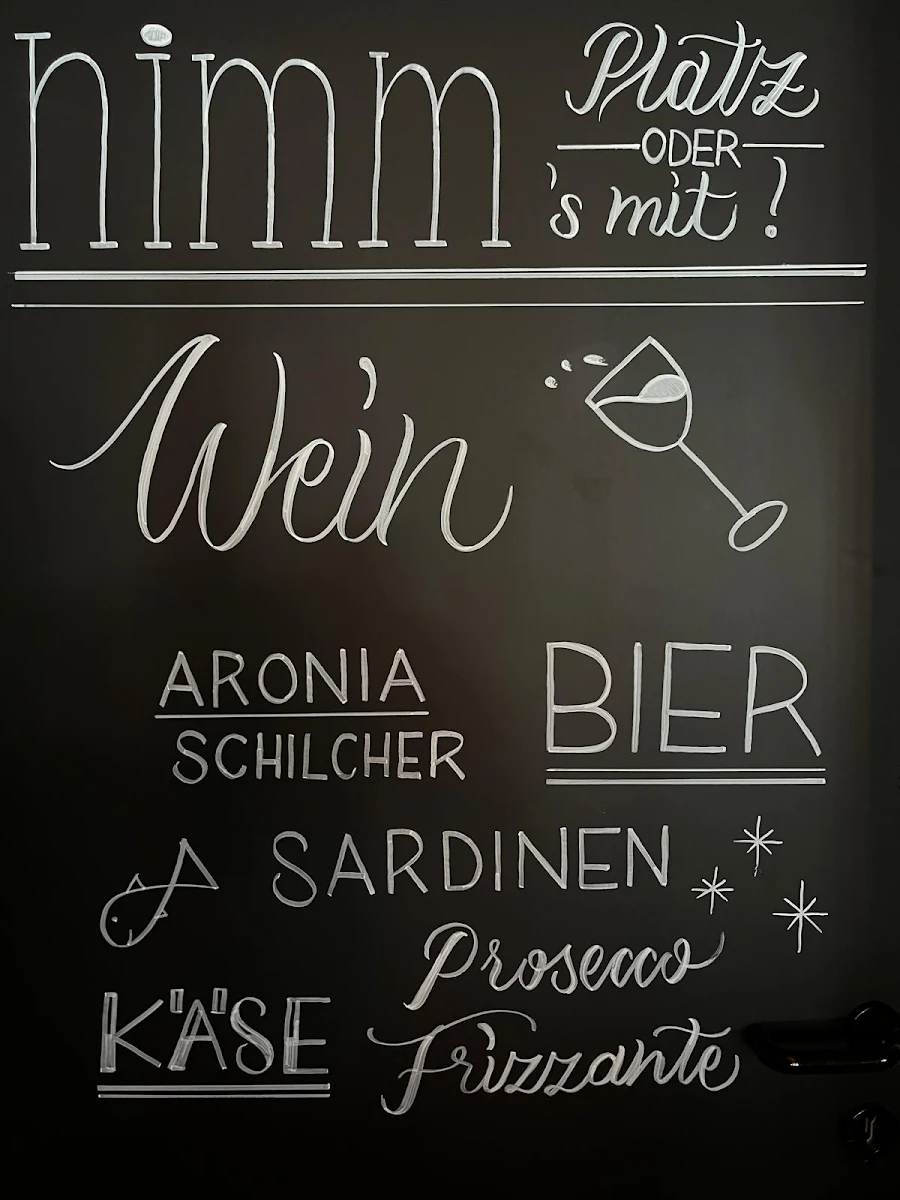 nimm Platz
ODER
's mit!
Wein
ARONIA
SCHILCHER
BIER
SARDINEN
Prosecco
KÄSE
Frizzante